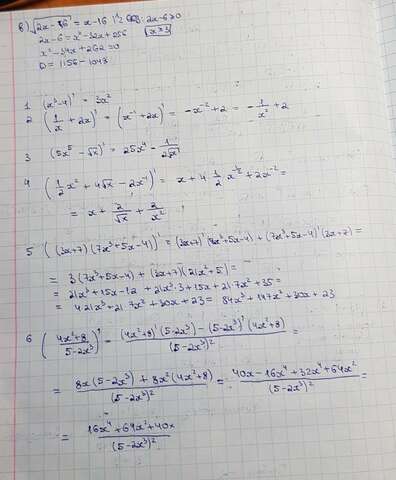 в) √2x-6 = x-16 |² ОДЗ: 2x-6≥0
2x-6 = x²-32x+256 x≥3
x²-34x+262=0
D = 1156-1048
1 (x³-4)' = 3x²
2 (1/x + 2x)' = (x⁻¹+2x)' = -x⁻²+2 = -1/x² + 2
3 (5x⁵ - √x)' = 25x⁴ - 1/(2√x)
4 (1/2 x² + 4√x - 2x⁻¹)' = x + 4 · 1/2 x^(-1/2) + 2x⁻² =
= x + 2/√x + 2/x²
5 ((3x+7)(7x³+5x-4))' = (3x+7)'(7x³+5x-4) + (7x³+5x-4)'(3x+7) =
= 3(7x³+5x-4) + (3x+7)(21x²+5) =
= 21x³+15x-12 + 21x²·3+15x+21·7x²+35 =
= 4·21x³+21·7x²+30x+23 = 84x³+147x²+30x+23
6 ((4x²+8)/(5-2x³))' = ((4x²+8)'(5-2x³) - (5-2x³)'(4x²+8))/(5-2x³)² =
= (8x(5-2x³) + 8x²(4x²+8))/(5-2x³)² = (40x-16x⁴+32x⁴+64x²)/(5-2x³)² =
= (16x⁴+64x²+40x)/(5-2x³)²